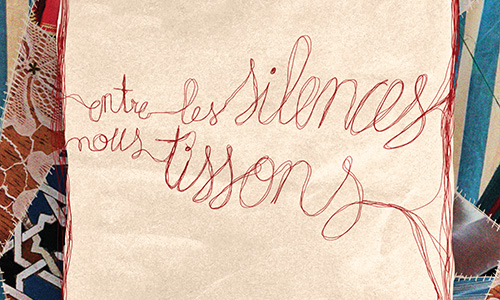 entre les silences
nous tissons